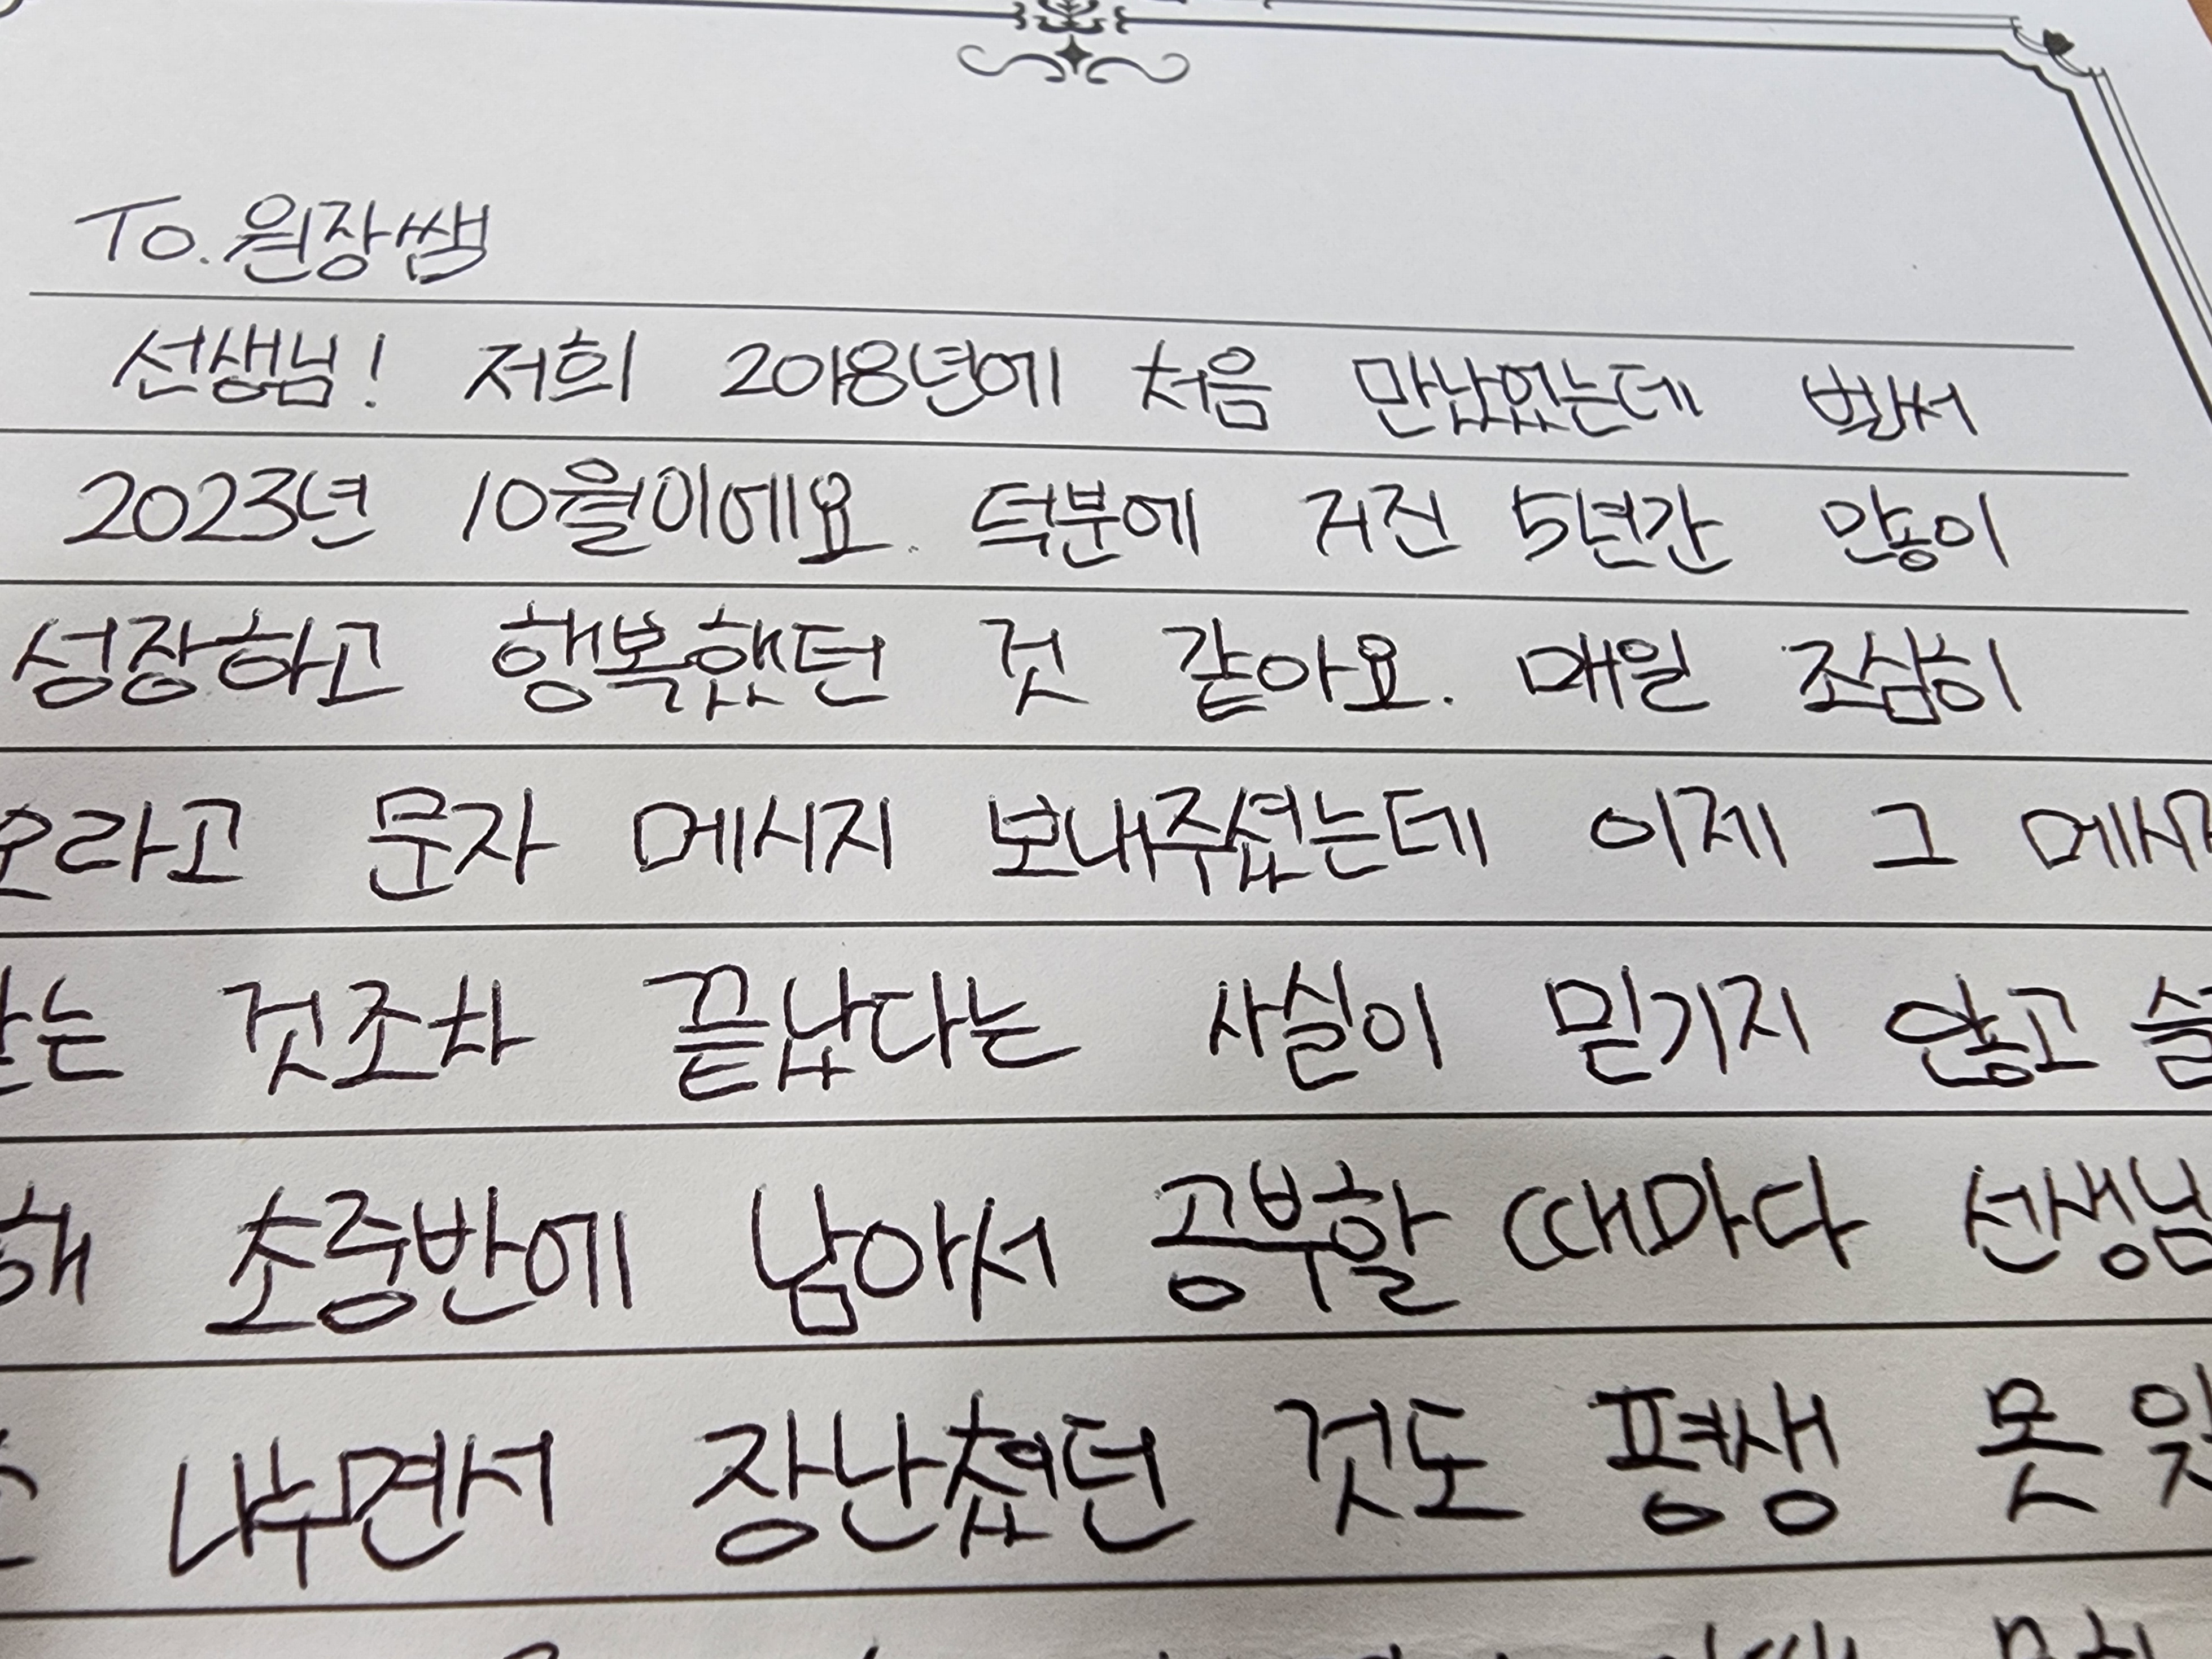 To. 원장쌤
선생님! 저희 2018년에 처음 만났었는데 벌써
2023년 10월이에요. 덕분에 거진 5년간 많이
성장하고 행복했던 것 같아요. 매일 조심히
오라고 문자 메시지 보내주셨는데 이제 그 메시지
받는 것조차 끝났다는 사실이 믿기지 않고
초중반에 남아서 공부할 때마다 선생님
나누면서 장난쳤던 것도 평생 못